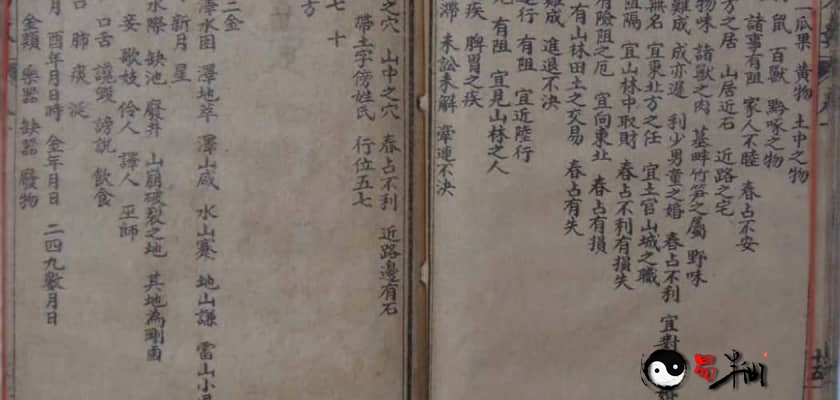 一瓜果 黃物 土中之物
鼠 百獸 黔喙之物
諸事有阻 家人不睦 春占不安
方之居 山居近石 近路之宅
物味 諸獸之肉 墓畔竹筍之屬 野味
難成 成亦遲 利少男童之婚 春占不利 宜對
無名 宜東北方之任 宜土官山城之職
阻隔 宜山林中取財 春占不利有損失
有險阻之厄 宜向東北 春占有損
有山林田土之交易 春占有失
難成 進退不決
之行 有阻 宜近陸行
見 有阻 宜見山林之人
疾 脾胃之疾
滯 未訟未解 牽連不決
之穴 山中之穴 春占不利 近路邊有石
帶土字傍姓氏 行位五七
七 十
方
二金
澤水困 澤地萃 澤山咸 水山蹇 地山謙 雷山小
新月 星
水際 缺池 廢井 山崩破裂之地 其地為剛鹵
妾 歌妓 伶人 譯人 巫師
口舌 讒毀 謗說 飲食
口 肺 痰 涎
月 酉年月日時 金年月日 二四九數月日
金類 樂器 缺器 廢物
十五
易半仙